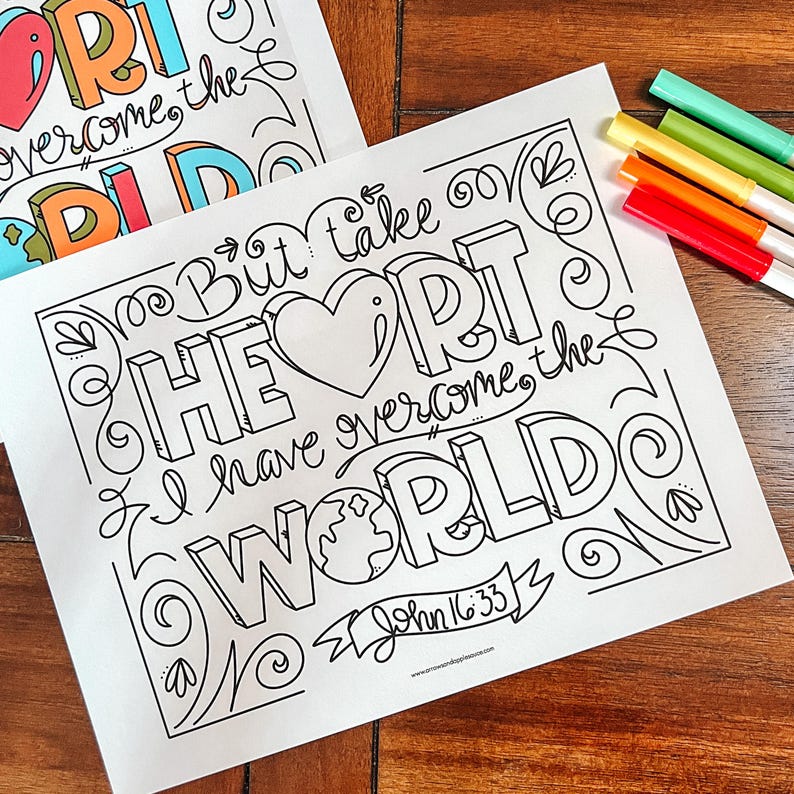 But take
HEART
I have overcome the
WORLD
John 16:33
www.arrowsandapplesauce.com
RT
overcome the
ORLD